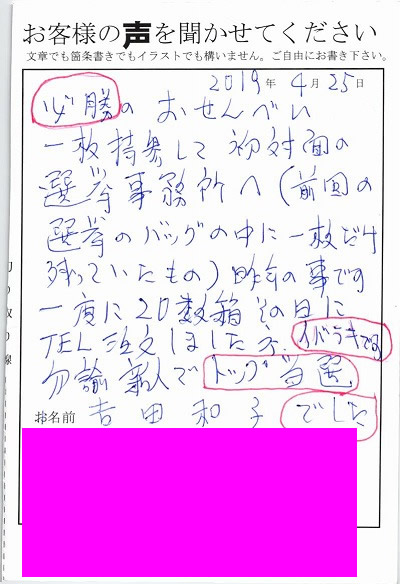 お客様の声を聞かせてください
文章でも箇条書きでもイラストでも構いません。ご自由にお書き下さい。
2019年 4月25日
必勝の おせんべい
一枚持参して 初対面の
選挙事務所へ(前回の
選挙のバッグの中に一枚だけ
残っていたもの)昨年の事です
一度に20数箱その日に
TEL注文しました。イバラキです
勿論新人でトップ当選
お名前 吉田和子 でした
切り取り線